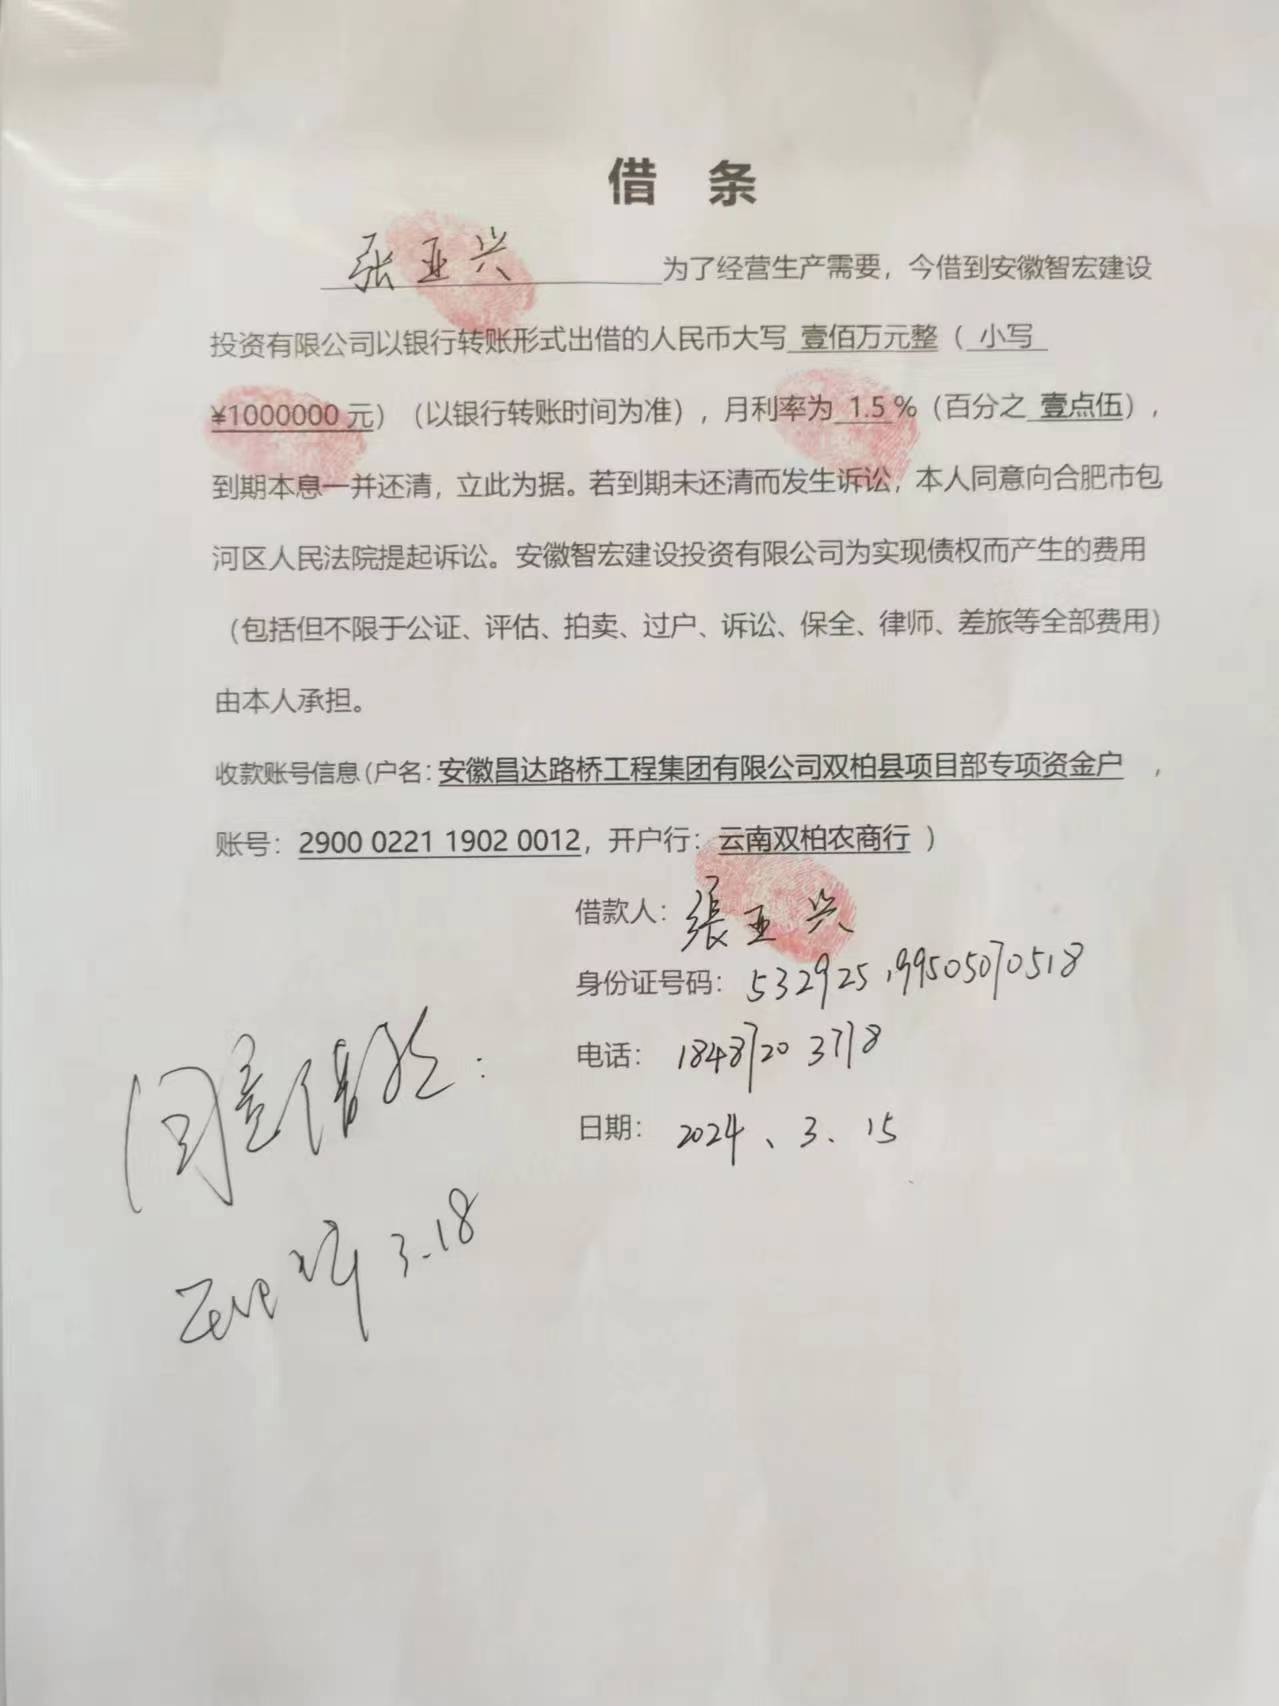 借 条
张亚兴 为了经营生产需要，今借到安徽智宏建设
投资有限公司以银行转账形式出借的人民币大写 壹佰万元整（ 小写
¥1000000 元）（以银行转账时间为准），月利率为 1.5 %（百分之 壹点伍），
到期本息一并还清，立此为据。若到期未还清而发生诉讼，本人同意向合肥市包
河区人民法院提起诉讼。安徽智宏建设投资有限公司为实现债权而产生的费用
（包括但不限于公证、评估、拍卖、过户、诉讼、保全、律师、差旅等全部费用）
由本人承担。
收款账号信息（户名：安徽昌达路桥工程集团有限公司双柏县项目部专项资金户 ，
账号：2900 0221 1902 0012，开户行：云南双柏农商行 ）
借款人：張亚兴
身份证号码：532925199505070518
电话：18487203718
日期：2024、3、15
同意借款：
3.18